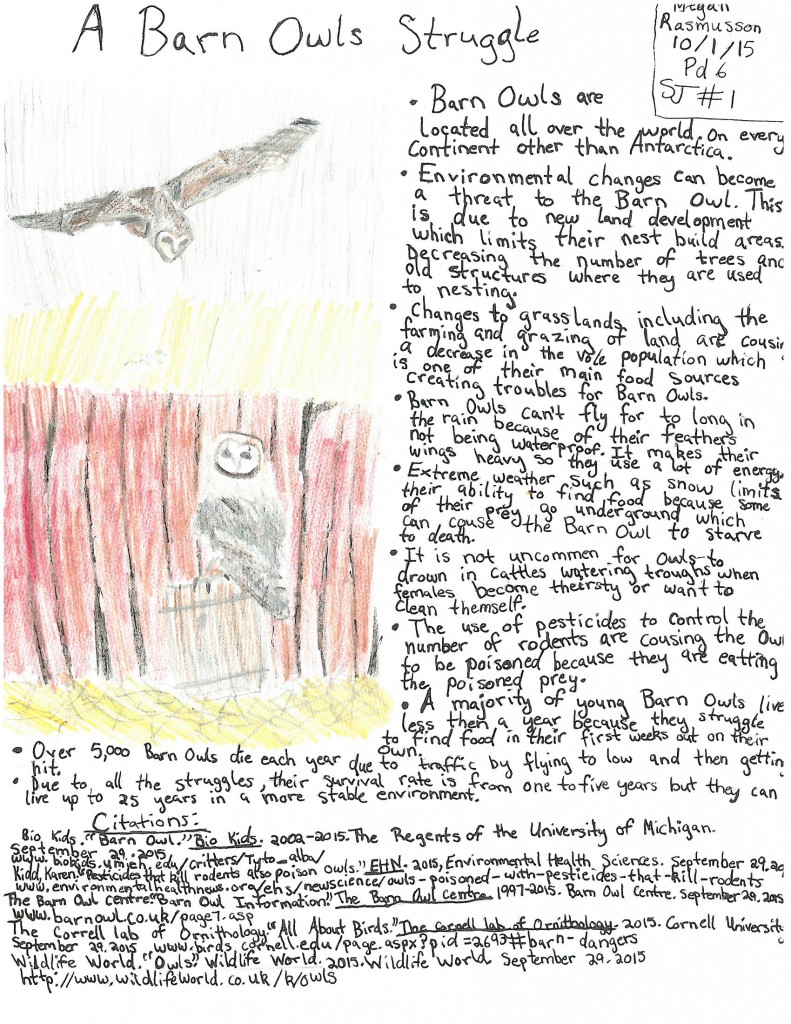 A Barn Owls Struggle
Megan
Rasmusson
10/1/15
Pd 6
SJ #1
• Barn Owls are
located all over the world. On every
Continent other than Antarctica.
• Environmental changes can become
a threat to the Barn Owl. This
is due to new land development
which limits their nest build areas.
Decreasing the number of trees and
old structures where they are used
to nesting.
• Changes to grasslands including the
farming and grazing of land are cousin
a decrease in the vole population which
is one of their main food sources
creating troubles for Barn Owls.
• Barn Owls can't fly for to long in
the rain because of their feathers
not being waterproof. It makes their
wings heavy so they use a lot of energy.
• Extreme weather such as snow limits
their ability to find food because some
of their prey go underground which
can couse the Barn Owl to starve
to death.
• It is not uncommen for Owls to
drown in cattles watering troughs when
females become theirsty or want to
clean themself.
• The use of pesticides to control the
number of rodents are cousing the Owl
to be poisoned because they are eatting
the poisoned prey.
• A majority of young Barn Owls live
less then a year because they struggle
to find food in their first weeks out on their
own.
• Over 5,000 Barn Owls die each year due to traffic by flying to low and then gettin
hit.
• Due to all the struggles, their survival rate is from one to five years but they can
live up to 25 years in a more stable environment.
Citations:
Bio Kids. "Barn Owl." Bio Kids. 2002-2015. The Regents of the University of Michigan.
September 29. 2015
www.biokids.umich.edu/critters/Tyto_alba/
Kidd, Karen. "Pesticides that kill rodents also poison owls." EHN. 2015, Environmental Health Sciences. September 29.20
www.environmentalhealthnews.org/ehs/newscience/owls-poisoned-with-pesticides-that-kill-rodents
The Barn Owl Centre. "Barn Owl Information." The Barn Owl Centre. 1997-2015. Barn Owl Centre. September 29, 2015
www.barnowl.co.uk/page7.asp
The Correll lab of Ornithology. "All About Birds." The cornell lab of Ornithology. 2015. Cornell Universit
September 29. 2015 www.birds.cornell.edu/page.aspx?pid=2693#barn-dangers
Wildlife World. "Owls." Wildlife World. 2015. Wildlife World September 29. 2015
http://www.wildlifeworld.co.uk/k/owls